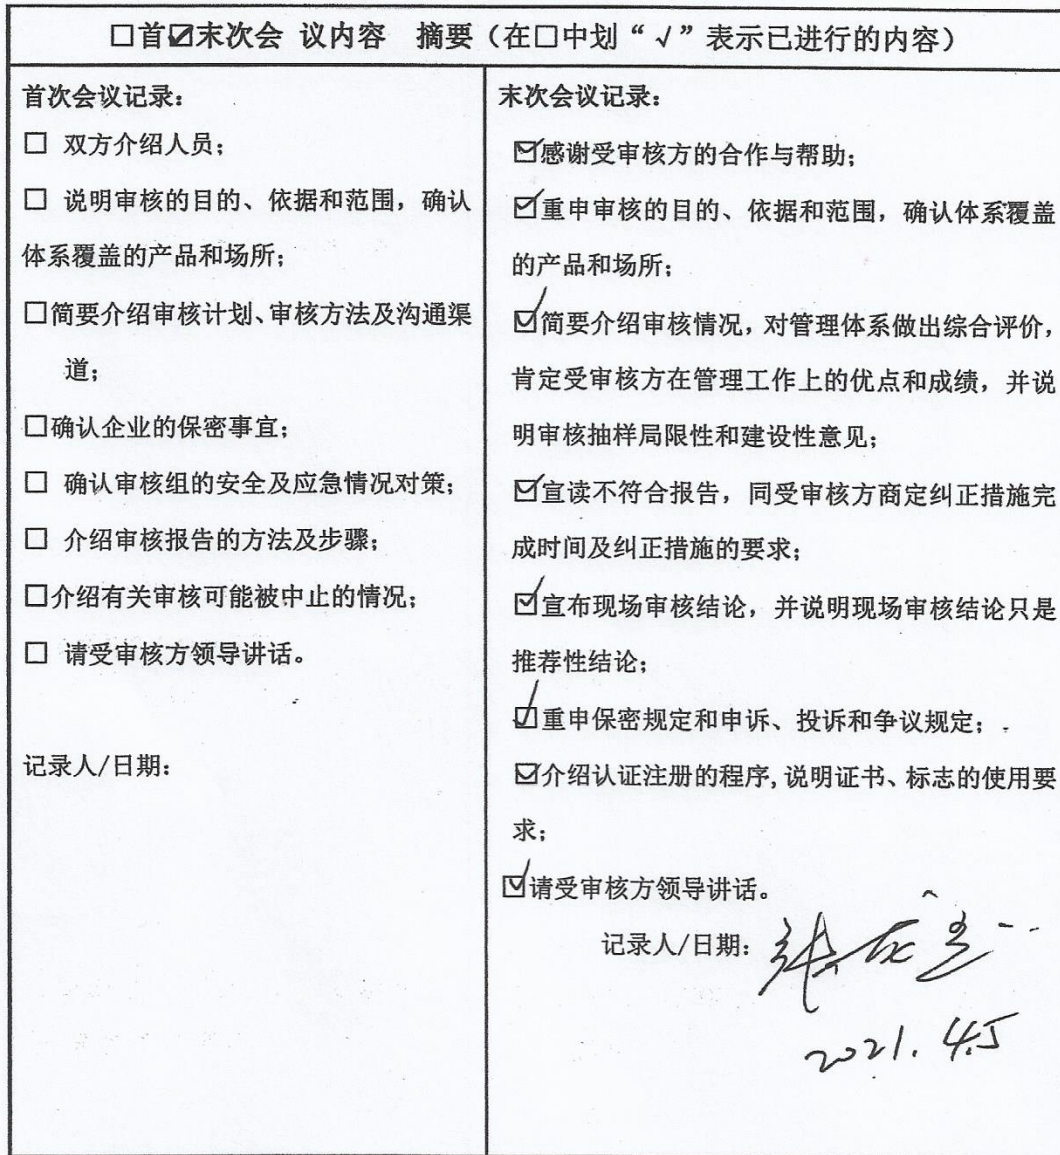 □首☑末次会 议内容 摘要（在□中划“√”表示已进行的内容）
首次会议记录：
□ 双方介绍人员；
□ 说明审核的目的、依据和范围，确认
体系覆盖的产品和场所；
□简要介绍审核计划、审核方法及沟通渠
道；
□确认企业的保密事宜；
□ 确认审核组的安全及应急情况对策；
□ 介绍审核报告的方法及步骤；
□介绍有关审核可能被中止的情况；
□ 请受审核方领导讲话。
记录人/日期：
末次会议记录：
☑感谢受审核方的合作与帮助；
☑重申审核的目的、依据和范围，确认体系覆盖
的产品和场所；
☑简要介绍审核情况，对管理体系做出综合评价，
肯定受审核方在管理工作上的优点和成绩，并说
明审核抽样局限性和建设性意见；
☑宣读不符合报告，同受审核方商定纠正措施完
成时间及纠正措施的要求；
☑宣布现场审核结论，并说明现场审核结论只是
推荐性结论；
☑重申保密规定和申诉、投诉和争议规定；
☑介绍认证注册的程序，说明证书、标志的使用要
求；
☑请受审核方领导讲话。
记录人/日期：
2021.4.5